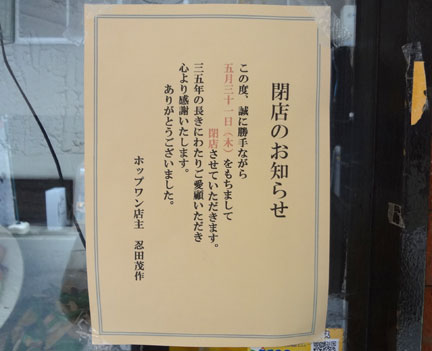 閉店のお知らせ
この度、誠に勝手ながら
五月三十一日（木）をもちまして
閉店させていただきます。
三五年の長きにわたりご愛顧いただき
心より感謝いたします。
ありがとうございました。
ホップワン店主　忍田茂作